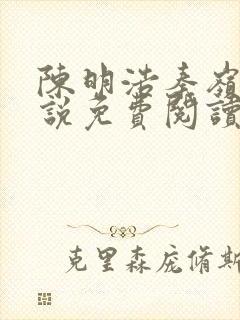 陳明浩秦嶺
說免費閱讀
克里森庞脩斯